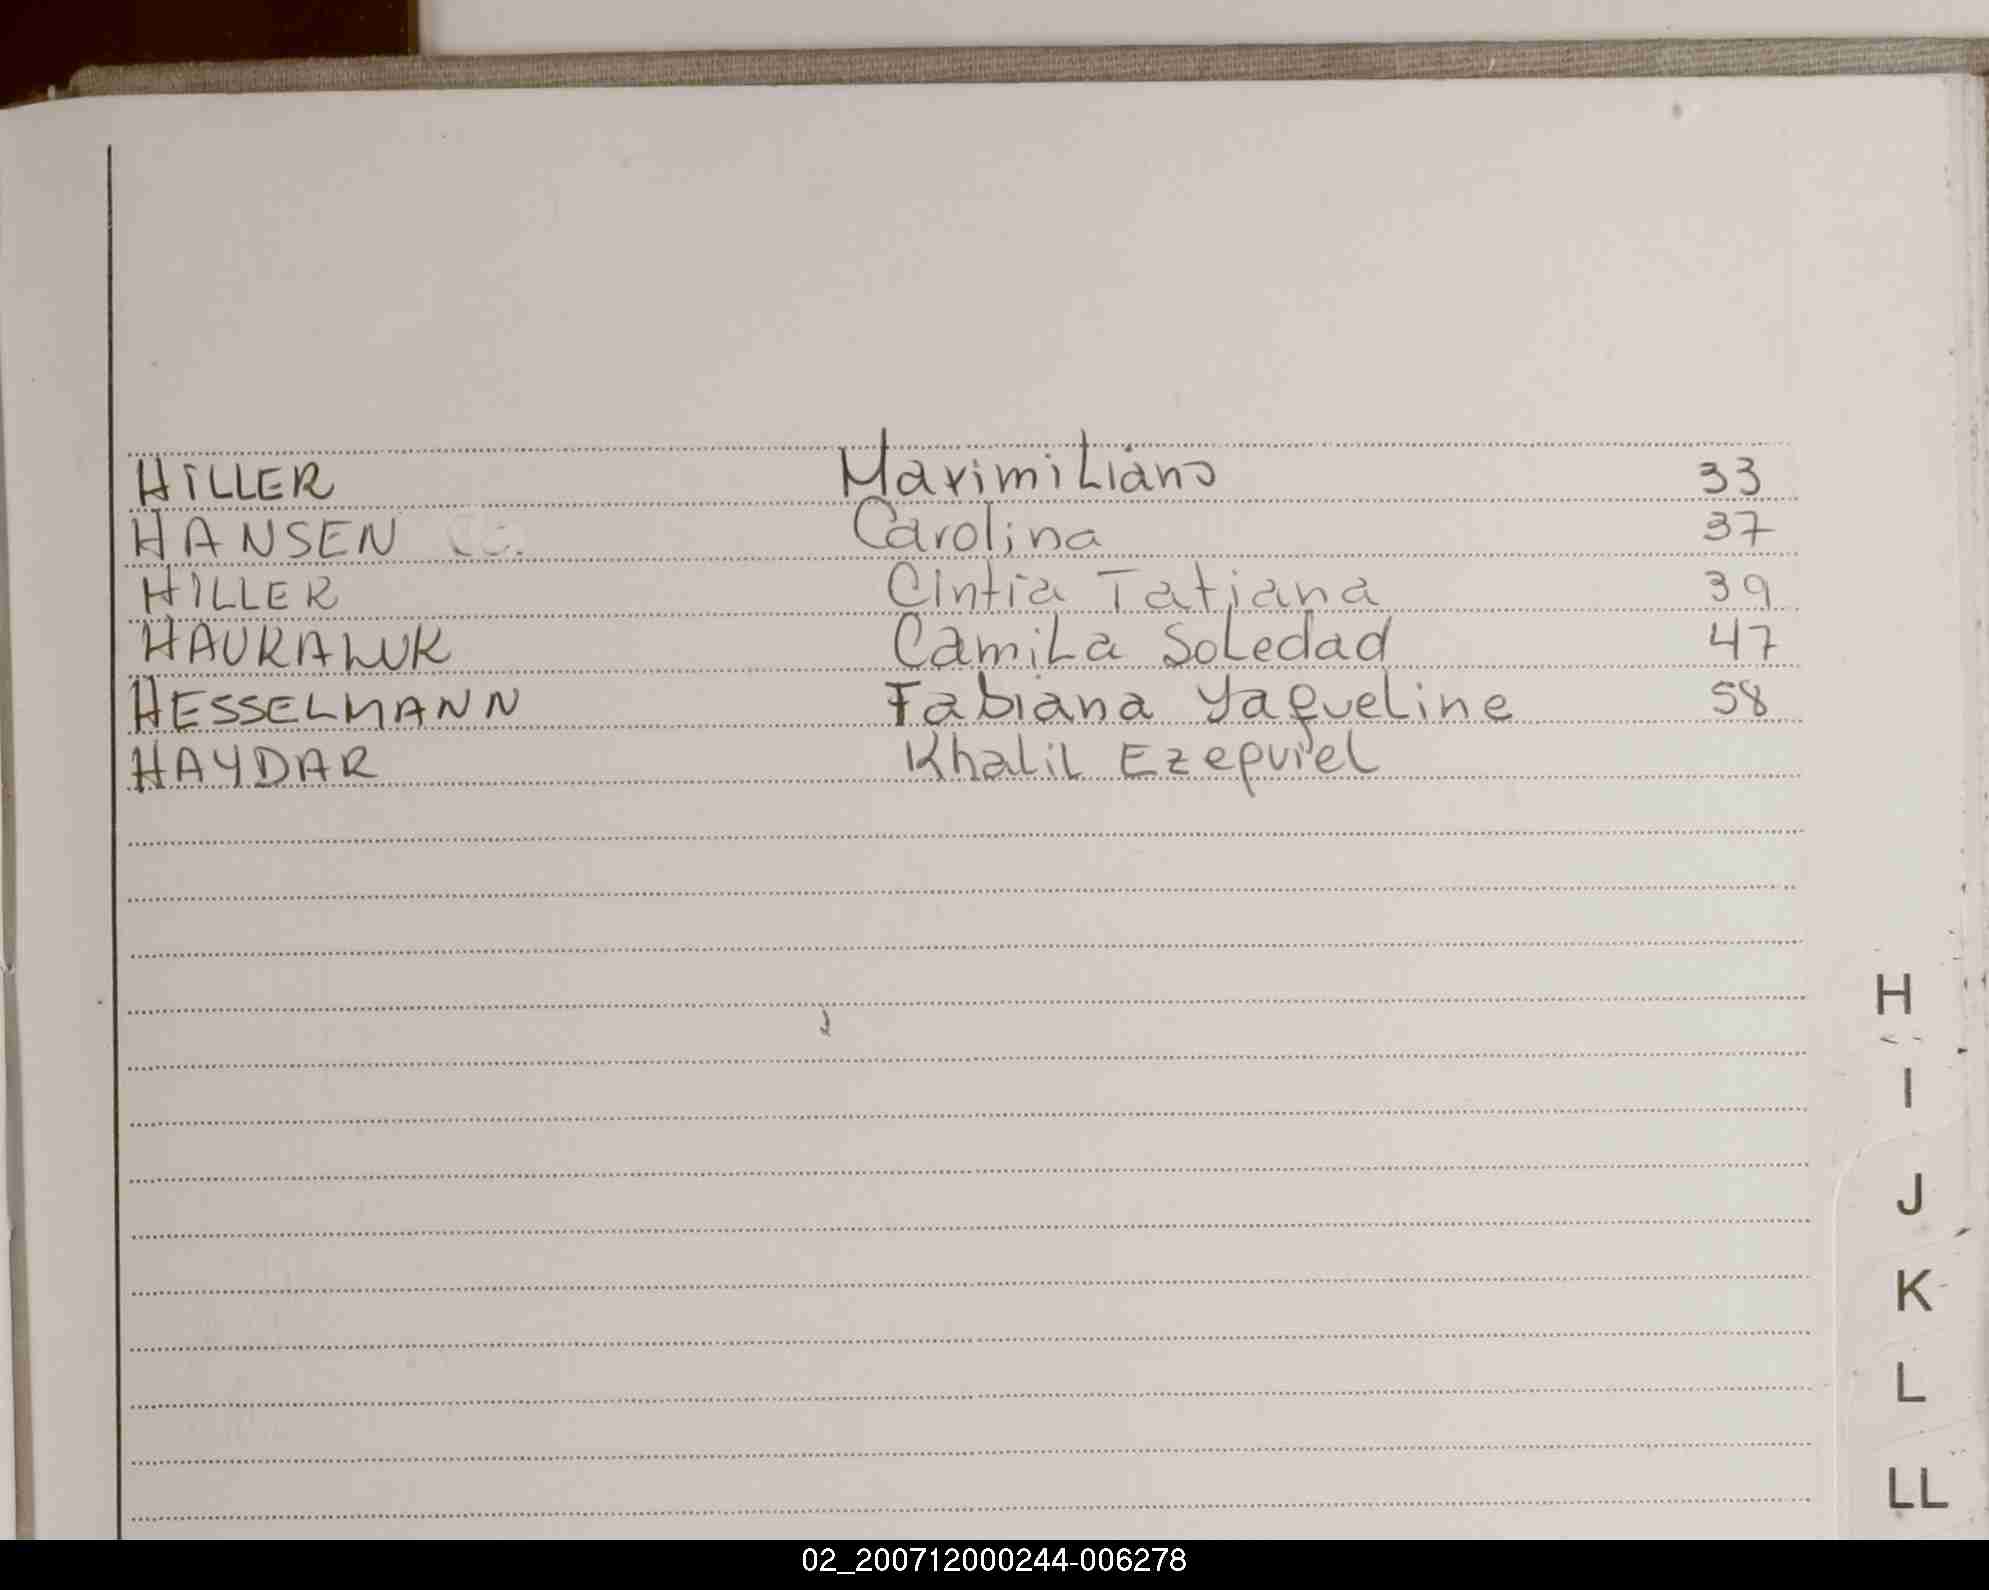 HILLER Maximiliano 33
HANSEN Carolina 37
HILLER Cintia Tatiana 39
Camila Soledad 47
HESSELMANN Fabiana Yaqueline 58
HAYDAR Khalil Ezequiel
H
I
J
K
L
LL
02_200712000244-006278